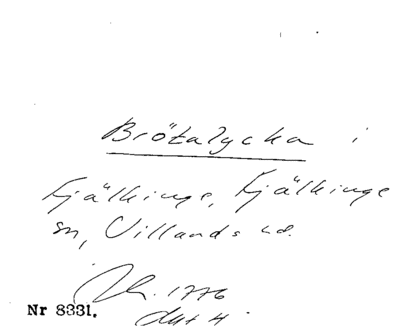 Brötalycka i
Fjälkinge, Fjälkinge
sn, Villands hd.
1776
Nr 8331.